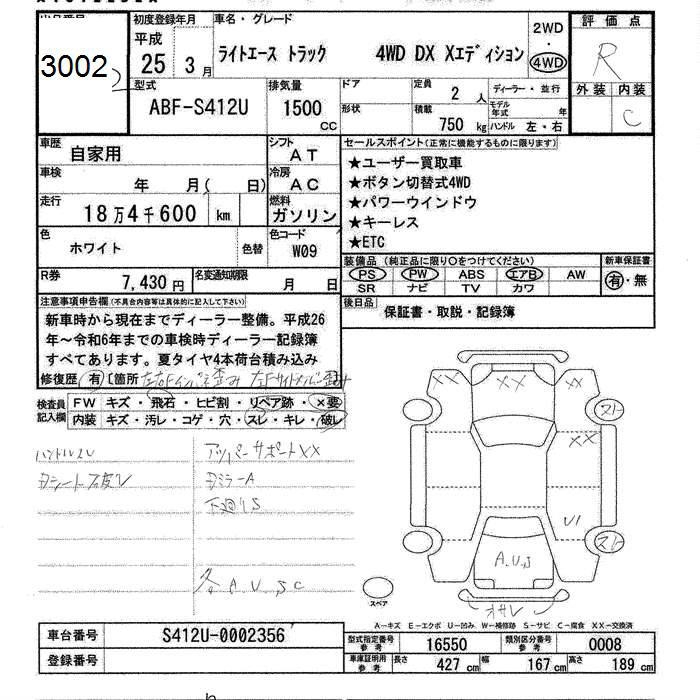 出品番号
3002
初度登録年月
平成
25 3月
車名・グレード
ライトエース トラック 4WD DX Xエディション
2WD
・
4WD
評価点
R
外装 内装
C
型式
ABF-S412U
排気量
1500
cc
ドア
形状
定員
2 人
積載
750 kg
ディーラー・並行
モデル年式 年
ハンドル 左・右
車歴
自家用
シフト
AT
車検
年 月( 日)
冷房
AC
走行
18万4千600 km
燃料
ガソリン
色
ホワイト
色替
色コード
W09
R券
7,430円
名変通知期限
月 日
セールスポイント(正常に機能するものに限ります)
★ユーザー買取車
★ボタン切替式4WD
★パワーウインドウ
★キーレス
★ETC
装備品(純正品に限り○をつけてください)
PS PW ABS エアB AW
SR ナビ TV カワ
新車保証書
有・無
後日品
保証書・取説・記録簿
注意事項申告欄(不具合内容等は具体的に記入して下さい)
新車時から現在までディーラー整備。平成26
年〜令和6年までの車検時ディーラー記録簿
すべてあります。夏タイヤ4本荷台積み込み
修復歴 有 [箇所
検査員
記入欄
FW キズ・飛石・ヒビ割・リペア跡・×要
内装 キズ・汚レ・コゲ・穴・スレ・キレ・破レ
ハンドルスレ
アッパーサポートXX
Dミラー A
下廻りS
各A.U.S C
XX
XX
XX
XX
A.U.S
スペア
A−キズ E−エクボ U−凹み W−補修跡 S−サビ C−腐食 XX−交換済
車台番号
S412U-0002356
登録番号
型式指定番号
参考
16550
類別区分番号
参考
0008
車庫証明用
参考
長さ 427 cm 幅 167 cm 高さ 189 cm